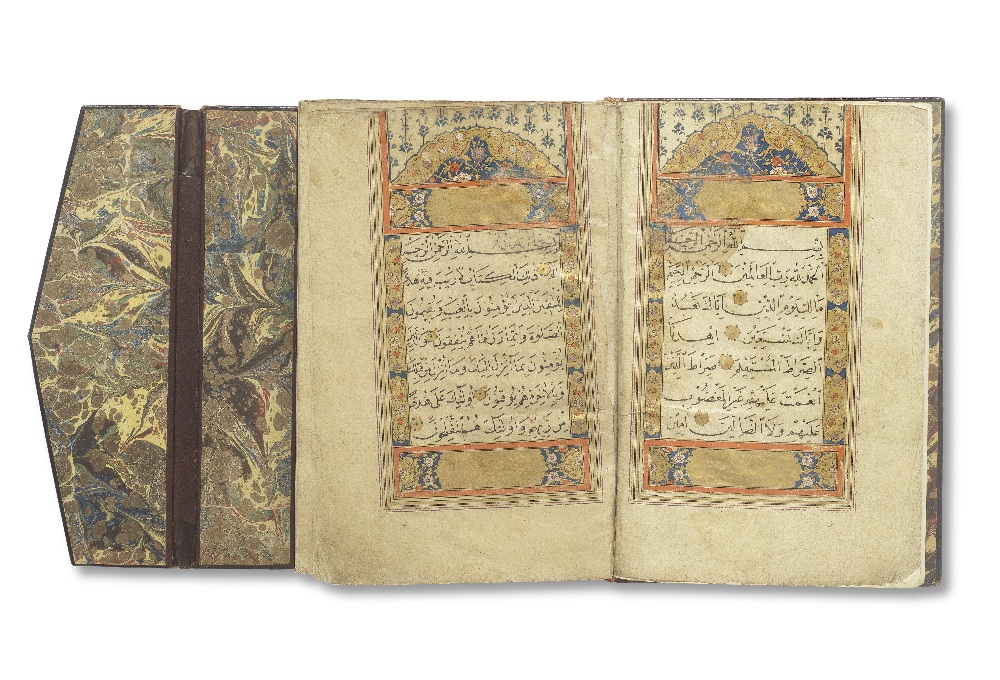 بسم الله الرحمن الرحيم
الحمد لله رب العالمين الرحمن الرحيم
مالك يوم الدين اياك نعبد
واياك نستعين اهدنا
الصراط المستقيم صراط الذين
انعمت عليهم غير المغضوب
عليهم ولا الضالين امين
بسم الله الرحمن الرحيم
الم ذلك الكتاب لا ريب فيه هدى
للمتقين الذين يؤمنون بالغيب ويقيمون
الصلوة ومما رزقناهم ينفقون والذين
يؤمنون بما انزل اليك وما انزل من قبلك
وبالاخرة هم يوقنون اولئك على هدى
من ربهم واولئك هم المفلحون